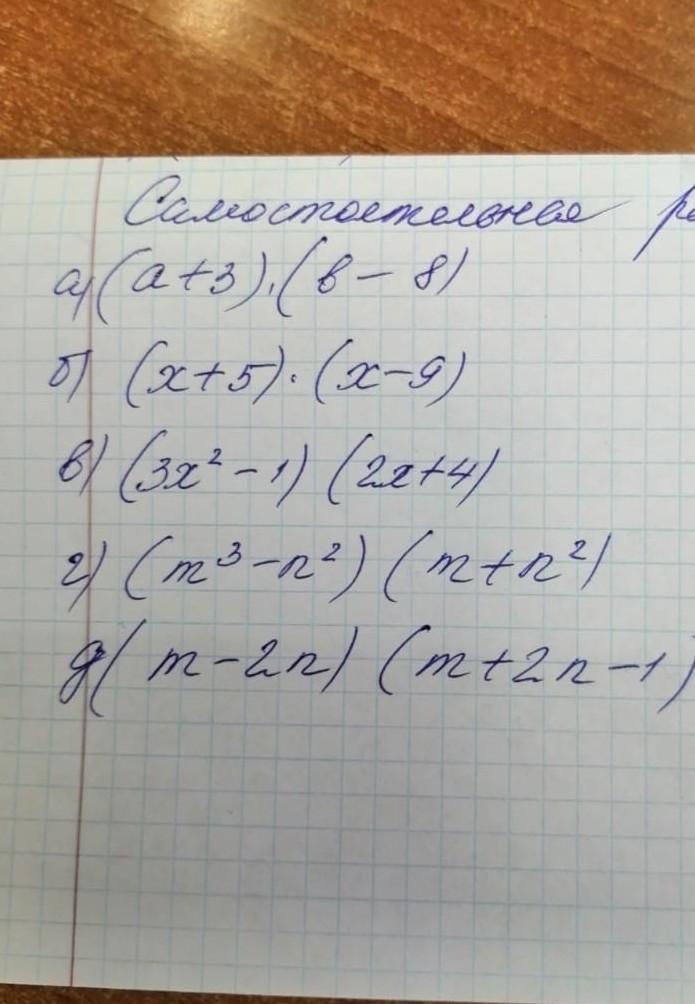 Самостоятельная
а) (а+3).(в-8)
б) (x+5)·(x-9)
в) (3x²-1) (2x+4)
г) (m³-n²) (m+n²)
д( m-2n) (m+2n-1)